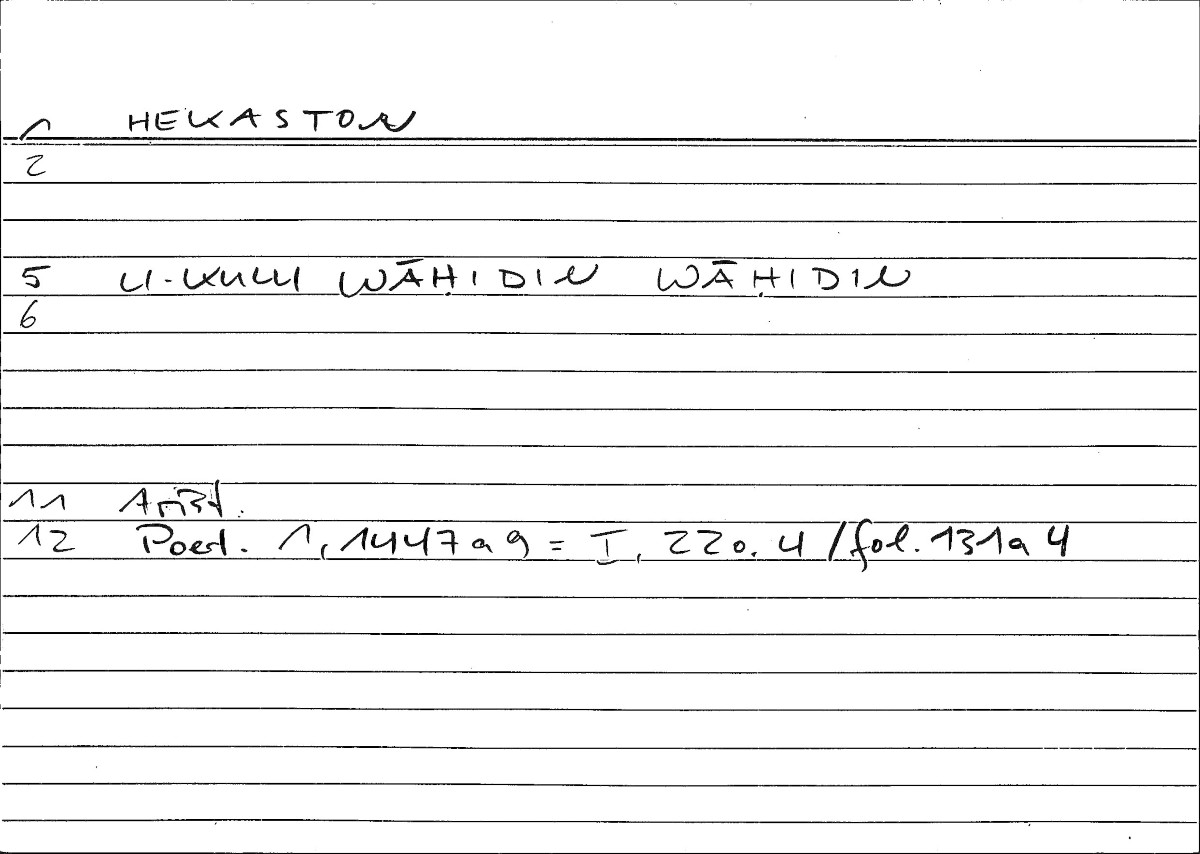 1 HEKASTON
2
5 LI-KULLI WĀḤIDIN WĀḤIDIN
6
11 Arist.
12 Poet. 1, 1447 a 9 = I, 220. 4 / fol. 131a 4